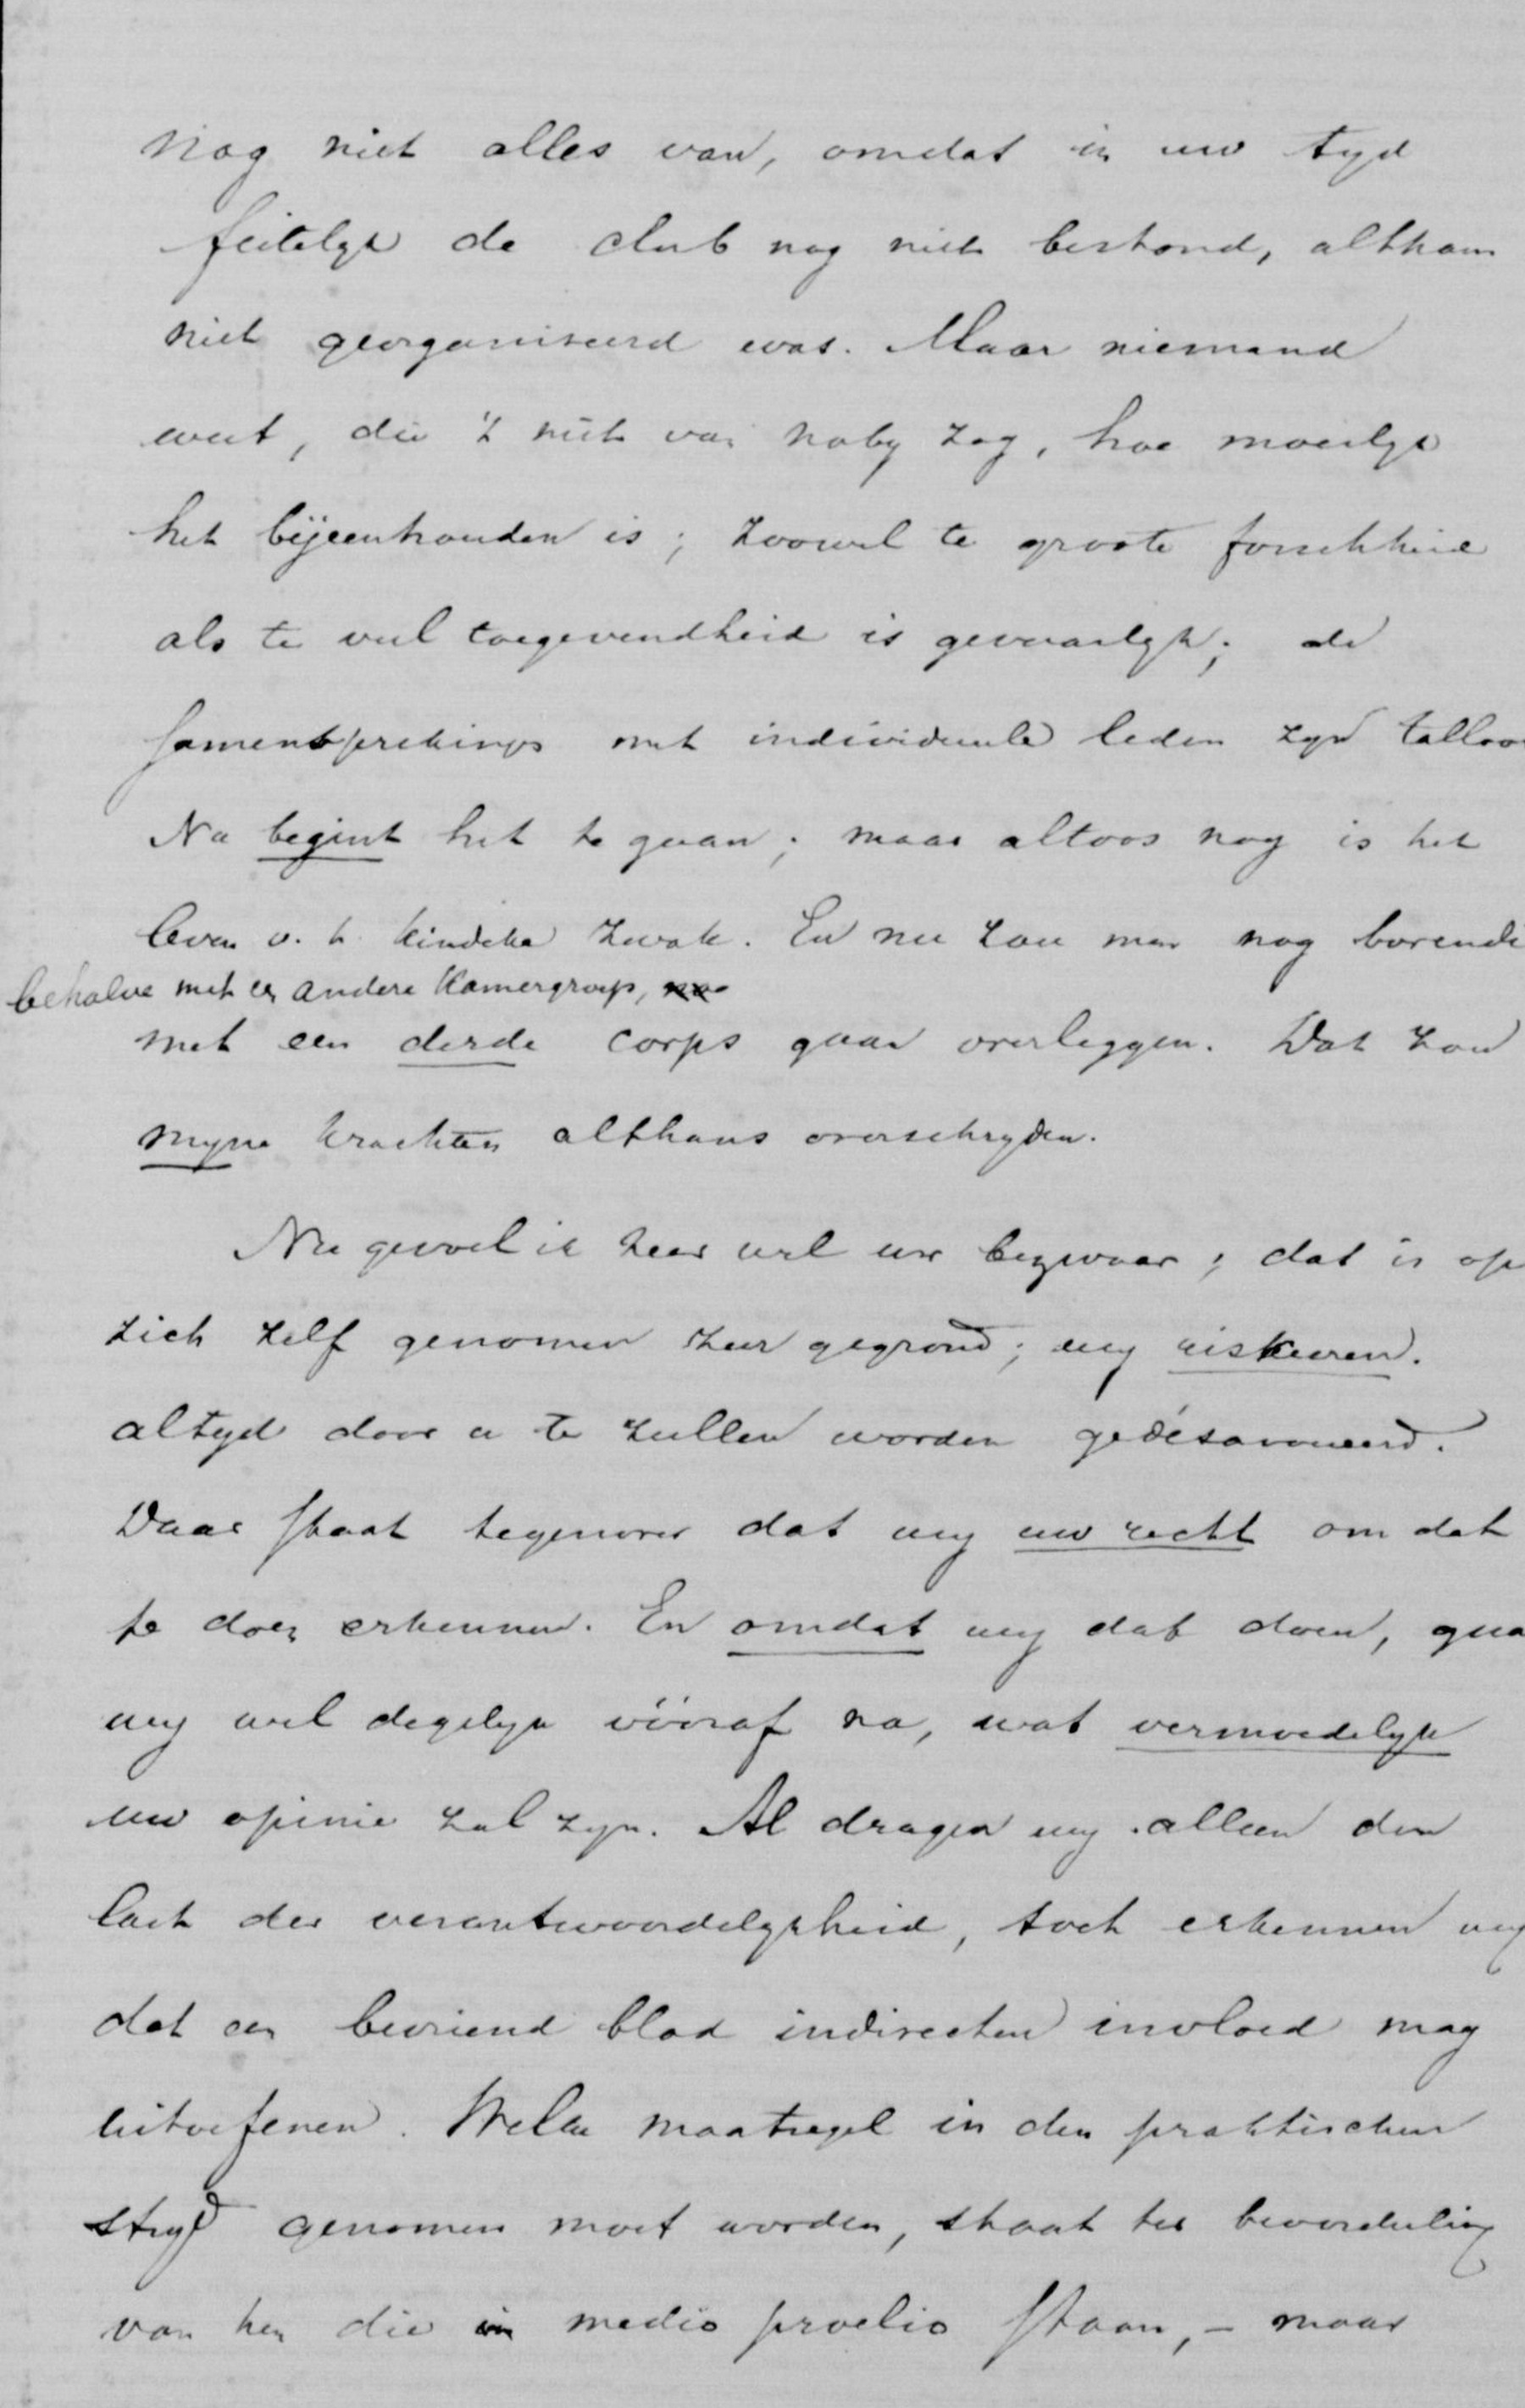 nog niet alles van, omdat in uw tyd
feitelyk de club nog niet bestond, althans
niet georganiseerd was. Maar niemand
weet, die 't niet van naby zag, hoe moeilyk
het bijeenhouden is; zoowel te groote forschheid
als te veel toegevendheid is gevaarlyk; de
samensprekings met individueele leden zyn talloos
Nu begint het te gaan; maar altoos nog is het
leven v. h. kindeke zwak. En nu zou men nog bovendien
behalve met een andere Kamergroep,
met een derde corps gaan overleggen. Dat zou
myne krachten althans overschryden.
Nu gevoel ik zeer wel uw bezwaar; dat is op
zich zelf genomen zeer gegrond; wy riskeeren
altyd door u te zullen worden gedésavoueerd.
Daar staat tegenover dat wy uw recht om dat
te doen erkennen. En omdat wy dat doen, gaan
wy wel degelyk vóóraf na, wat vermoedelyk
uw opinie zal zyn. Al dragen wy alleen den
last der verantwoordelykheid, toch erkennen wy
dat een bevriend blad indirecten invloed mag
uitoefenen. Welke maatregel in den praktischen
stryd genomen moet worden, staat ter beoordeeling
van hen die in medio proelio staan, – maar